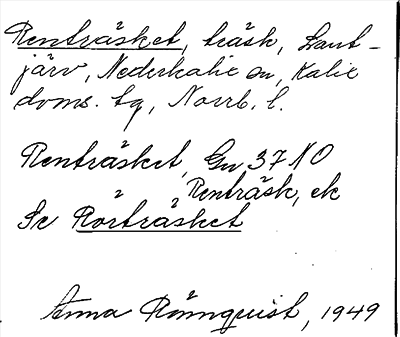 Renträsket, träsk, Laut-
järv, Nederkalix sn, Kalix
doms. tg, Norrb. l.
Renträsket, Gn 37 NO
Renträsk, ek
Se Rörträsket
Anna Rönnquist, 1949